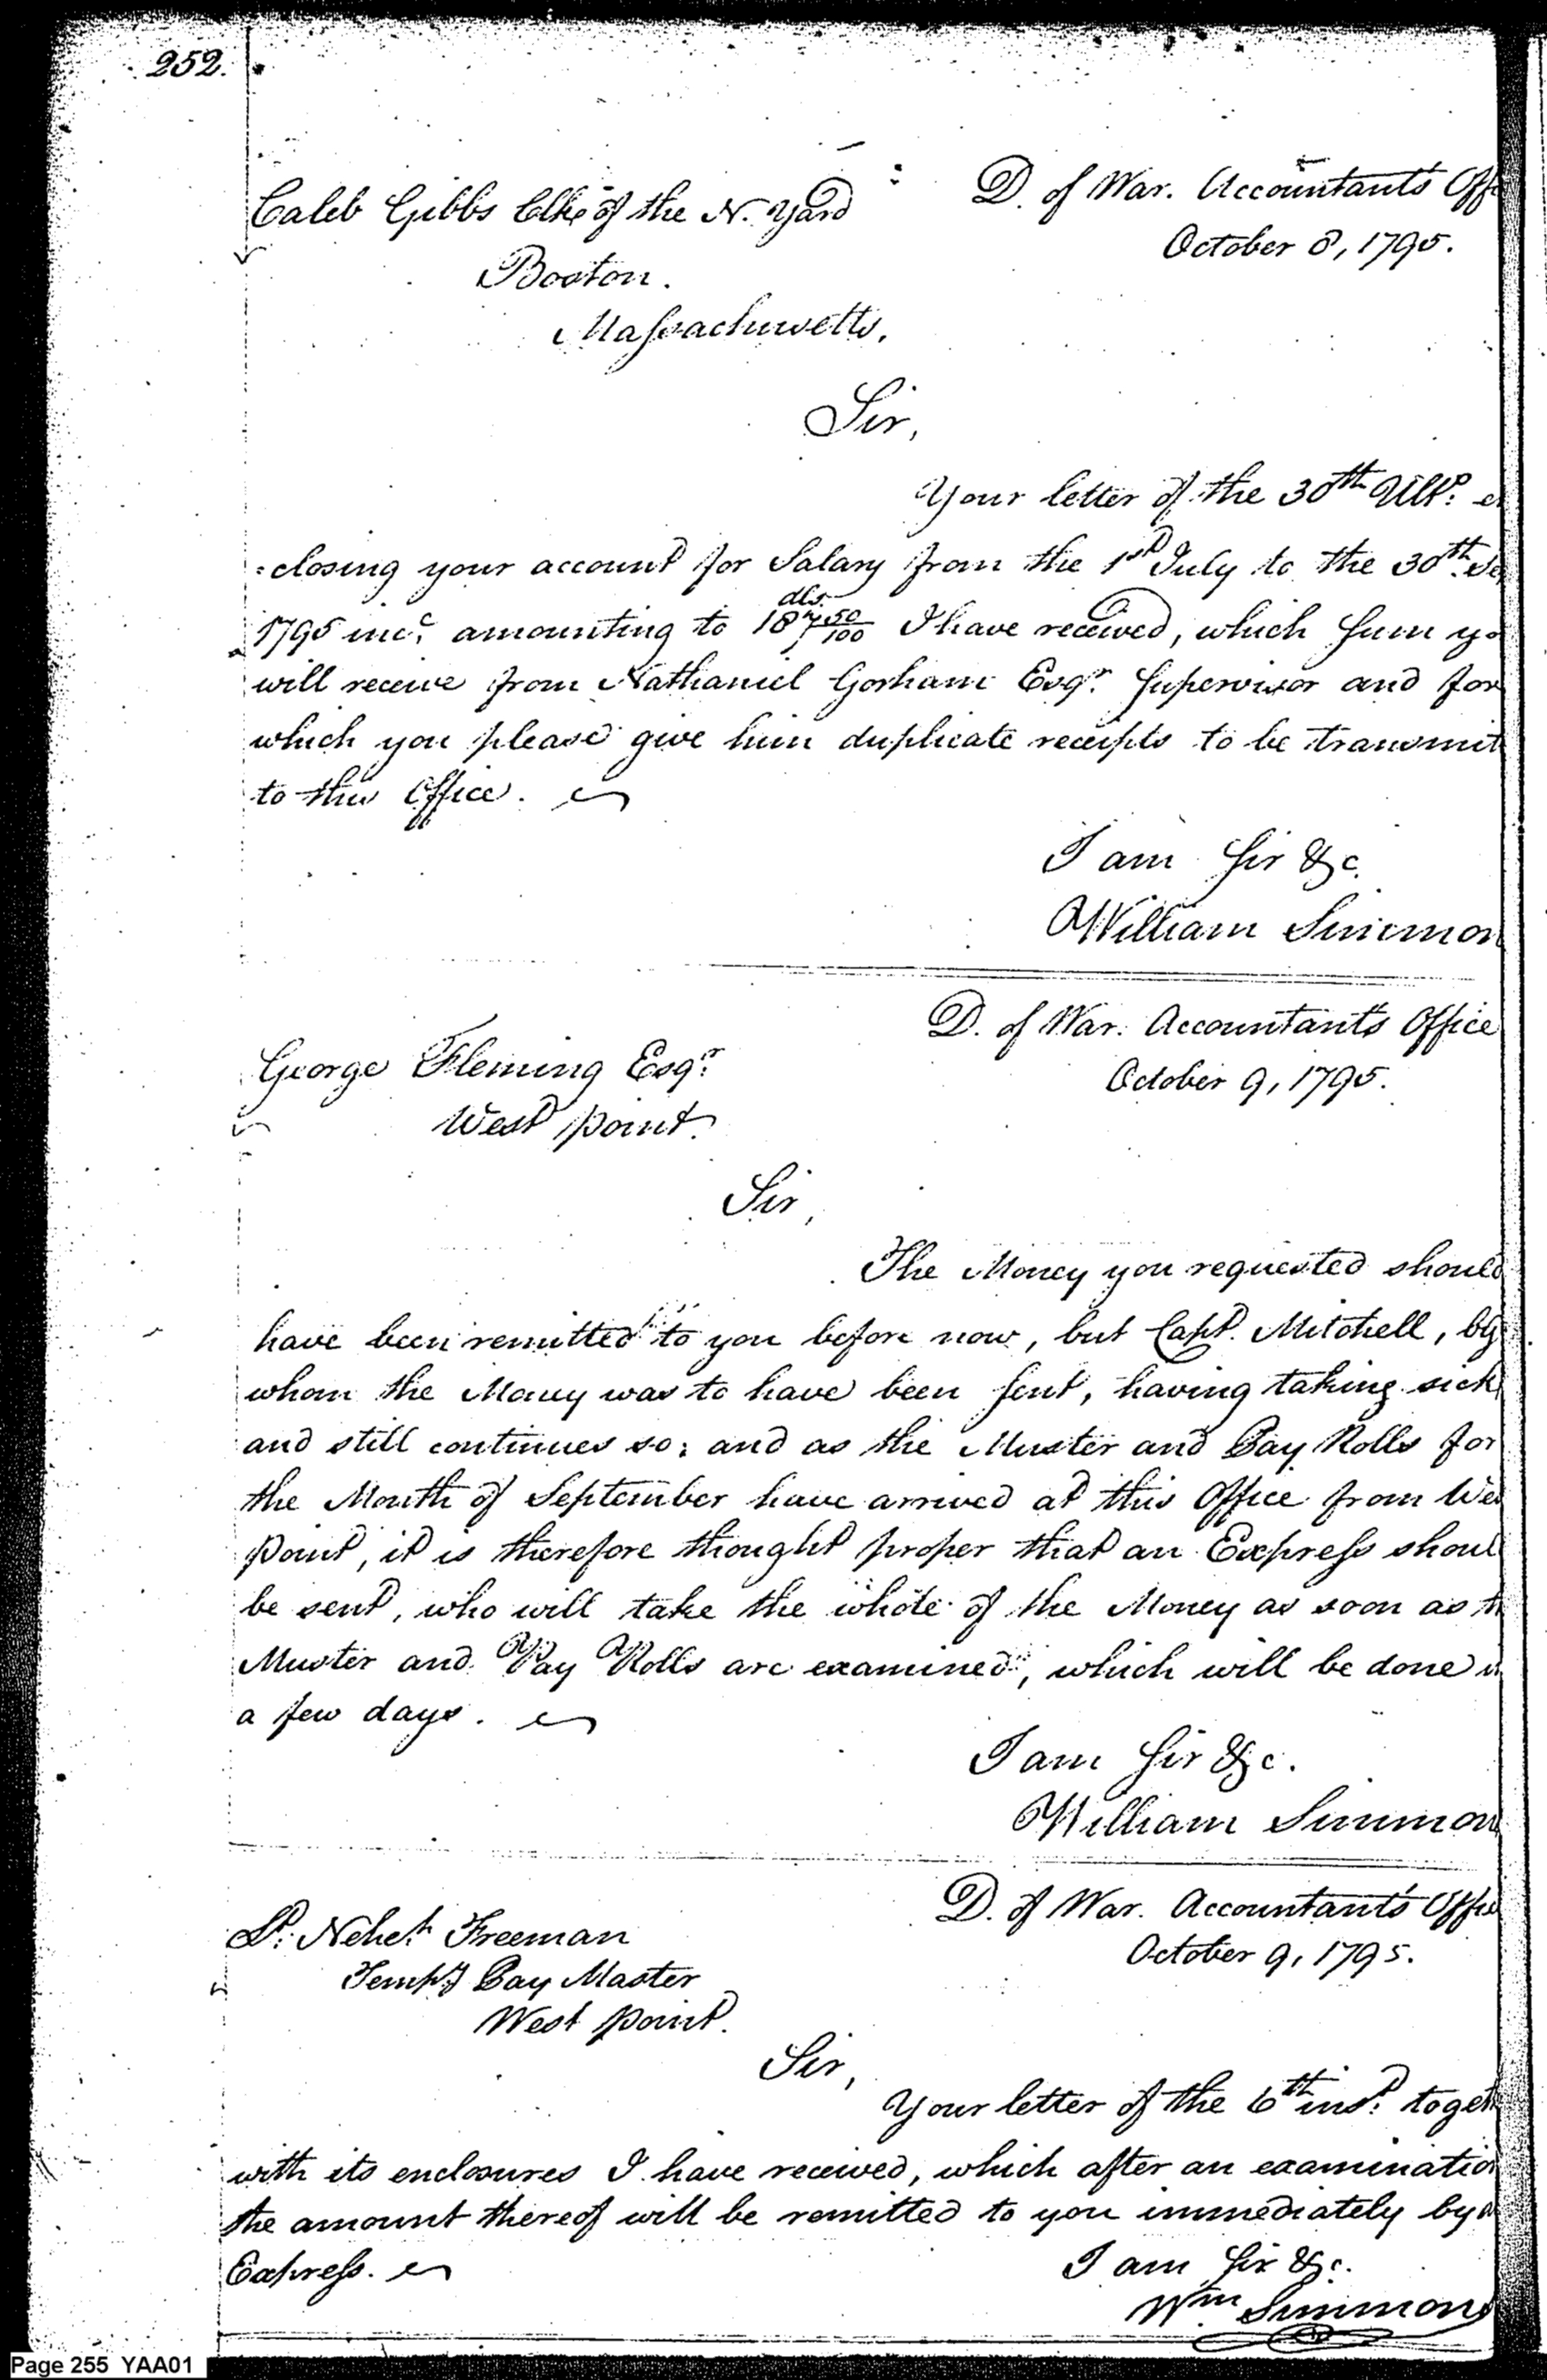 252.
Caleb Gibbs Clke of the N. Yard
D. of War. Accountant's Off
October 8, 1795.
Boston.
Massachusetts.
Sir,
Your letter of the 30th Ulto. e
=closing your account for Salary from the 1st July to the 30th Se
1795 incd. amounting to 187 50/100 dls. I have received, which sum yo
will receive from Nathaniel Gorham Esqr. Supervisor and for
which you please give him duplicate receipts to be transmit
to this Office.
I am Sir &c.
William Simmon
D. of War. Accountant's Office
George Fleming Esqr.
October 9, 1795.
West point.
Sir,
The Money you requested should
have been remitted to you before now, but Capt. Mitchell, by
whom the Money was to have been sent, having taking sick
and still continues so; and as the Muster and Pay Rolls for
the Month of September have arrived at this Office from Wes
point, it is therefore thought proper that an Express shoul
be sent, who will take the whole of the Money as soon as th
Muster and Pay Rolls are examined, which will be done i
a few days.
I am Sir &c.
William Simmon
D. of War. Accountant's Offic
Lt. Neheh. Freeman
October 9, 1795.
Tempy Pay Master
West point.
Sir,
Your letter of the 6th inst. toget
with its enclosures I have received, which after an examination
the amount thereof will be remitted to you immediately by a
Express.
I am Sir &c.
Wm Simmons
Page 255 YAA01